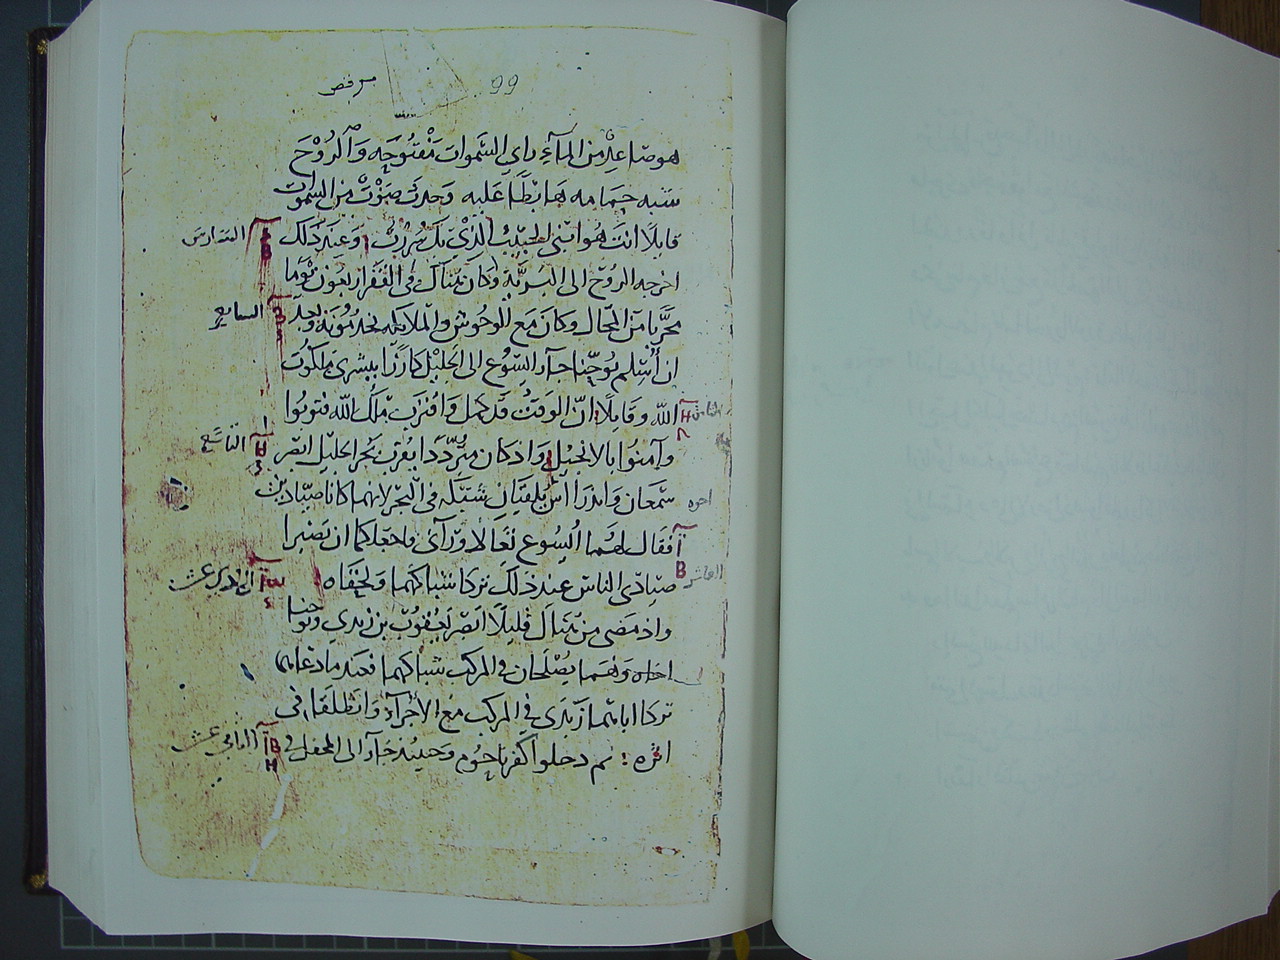 مرقص 99
هو صاعد من المآء راي السموات مفتوحه والروح
شبه حمامه هابطا عليه وحدث صوت من السموات
قايلا انت هو ابني الحبيب الذي بك سررت وعند ذلك
السادس
اخرجه الروح الى البريه وكان هناك في القفر اربعون يوما
مجربا من المحال وكان مع الوحوش والملايكه يخدمونه وبعد
السابع
ان أسلم يوحنا جآء اليسوع الى الجليل كارزا ببشرى ملكوت
الثامن
الله وقايلا ان الوقت قد كمل واقترب ملك الله فتوبوا
وآمنوا بالانجيل واذ كان مترددا بقرب بحر الجليل ابصر
التاسع
سمعان واندراس يلقيان شبكه في البحر لانهما كانا صيادين
اخوه
فقال لهما اليسوع تعالا ورآى واجعلكما ان تصيرا
العاشر
صيادى الناس عند ذلك تركا شباكهما ولحقاه
الحادى عشر
واذ مضى من هناك قليلا ابصر يعقوب بن زبدي ويوحنا
اخاه وهما يصلحان في المركب شباكهما فعند ما دعاهما
تركا اباهما زبدى في المركب مع الأجرآء وانطلقا في
اثره ثم دخلوا كفرناحوم وحينيذ جآء الى المحفل في
الثاني عشر